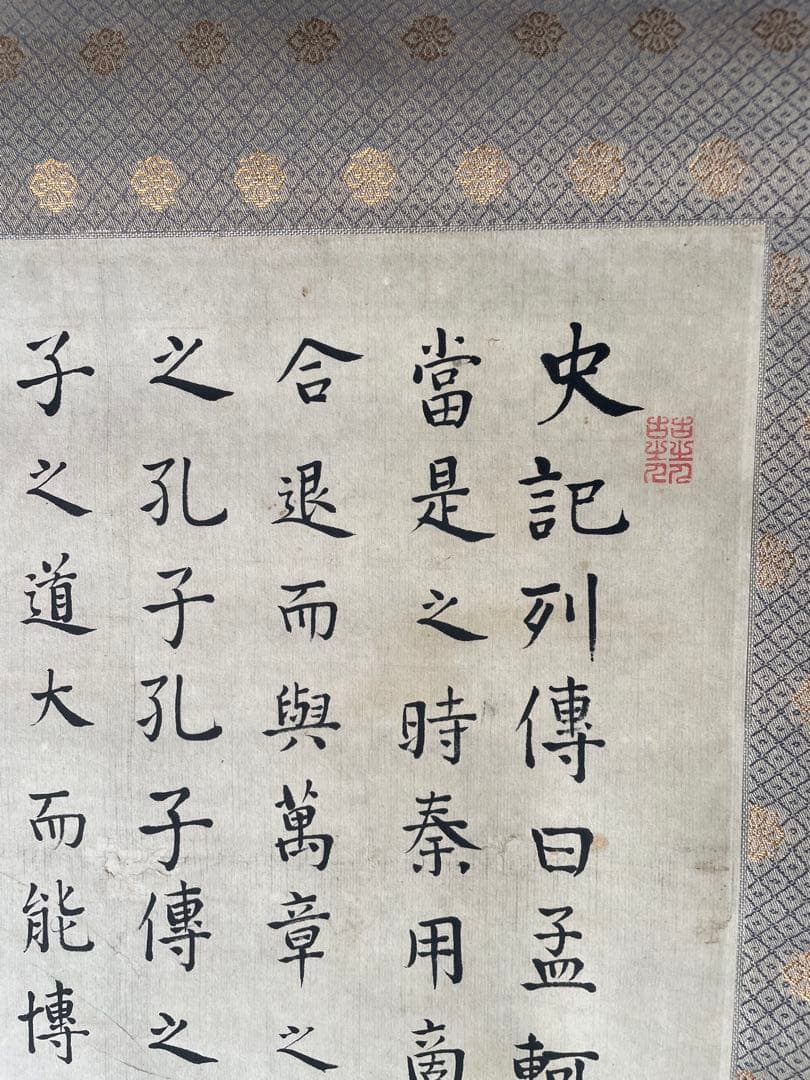 史記列傳曰孟軻
當是之時秦用商
合退而與萬章之
之孔子孔子傳之
子之道大而能博